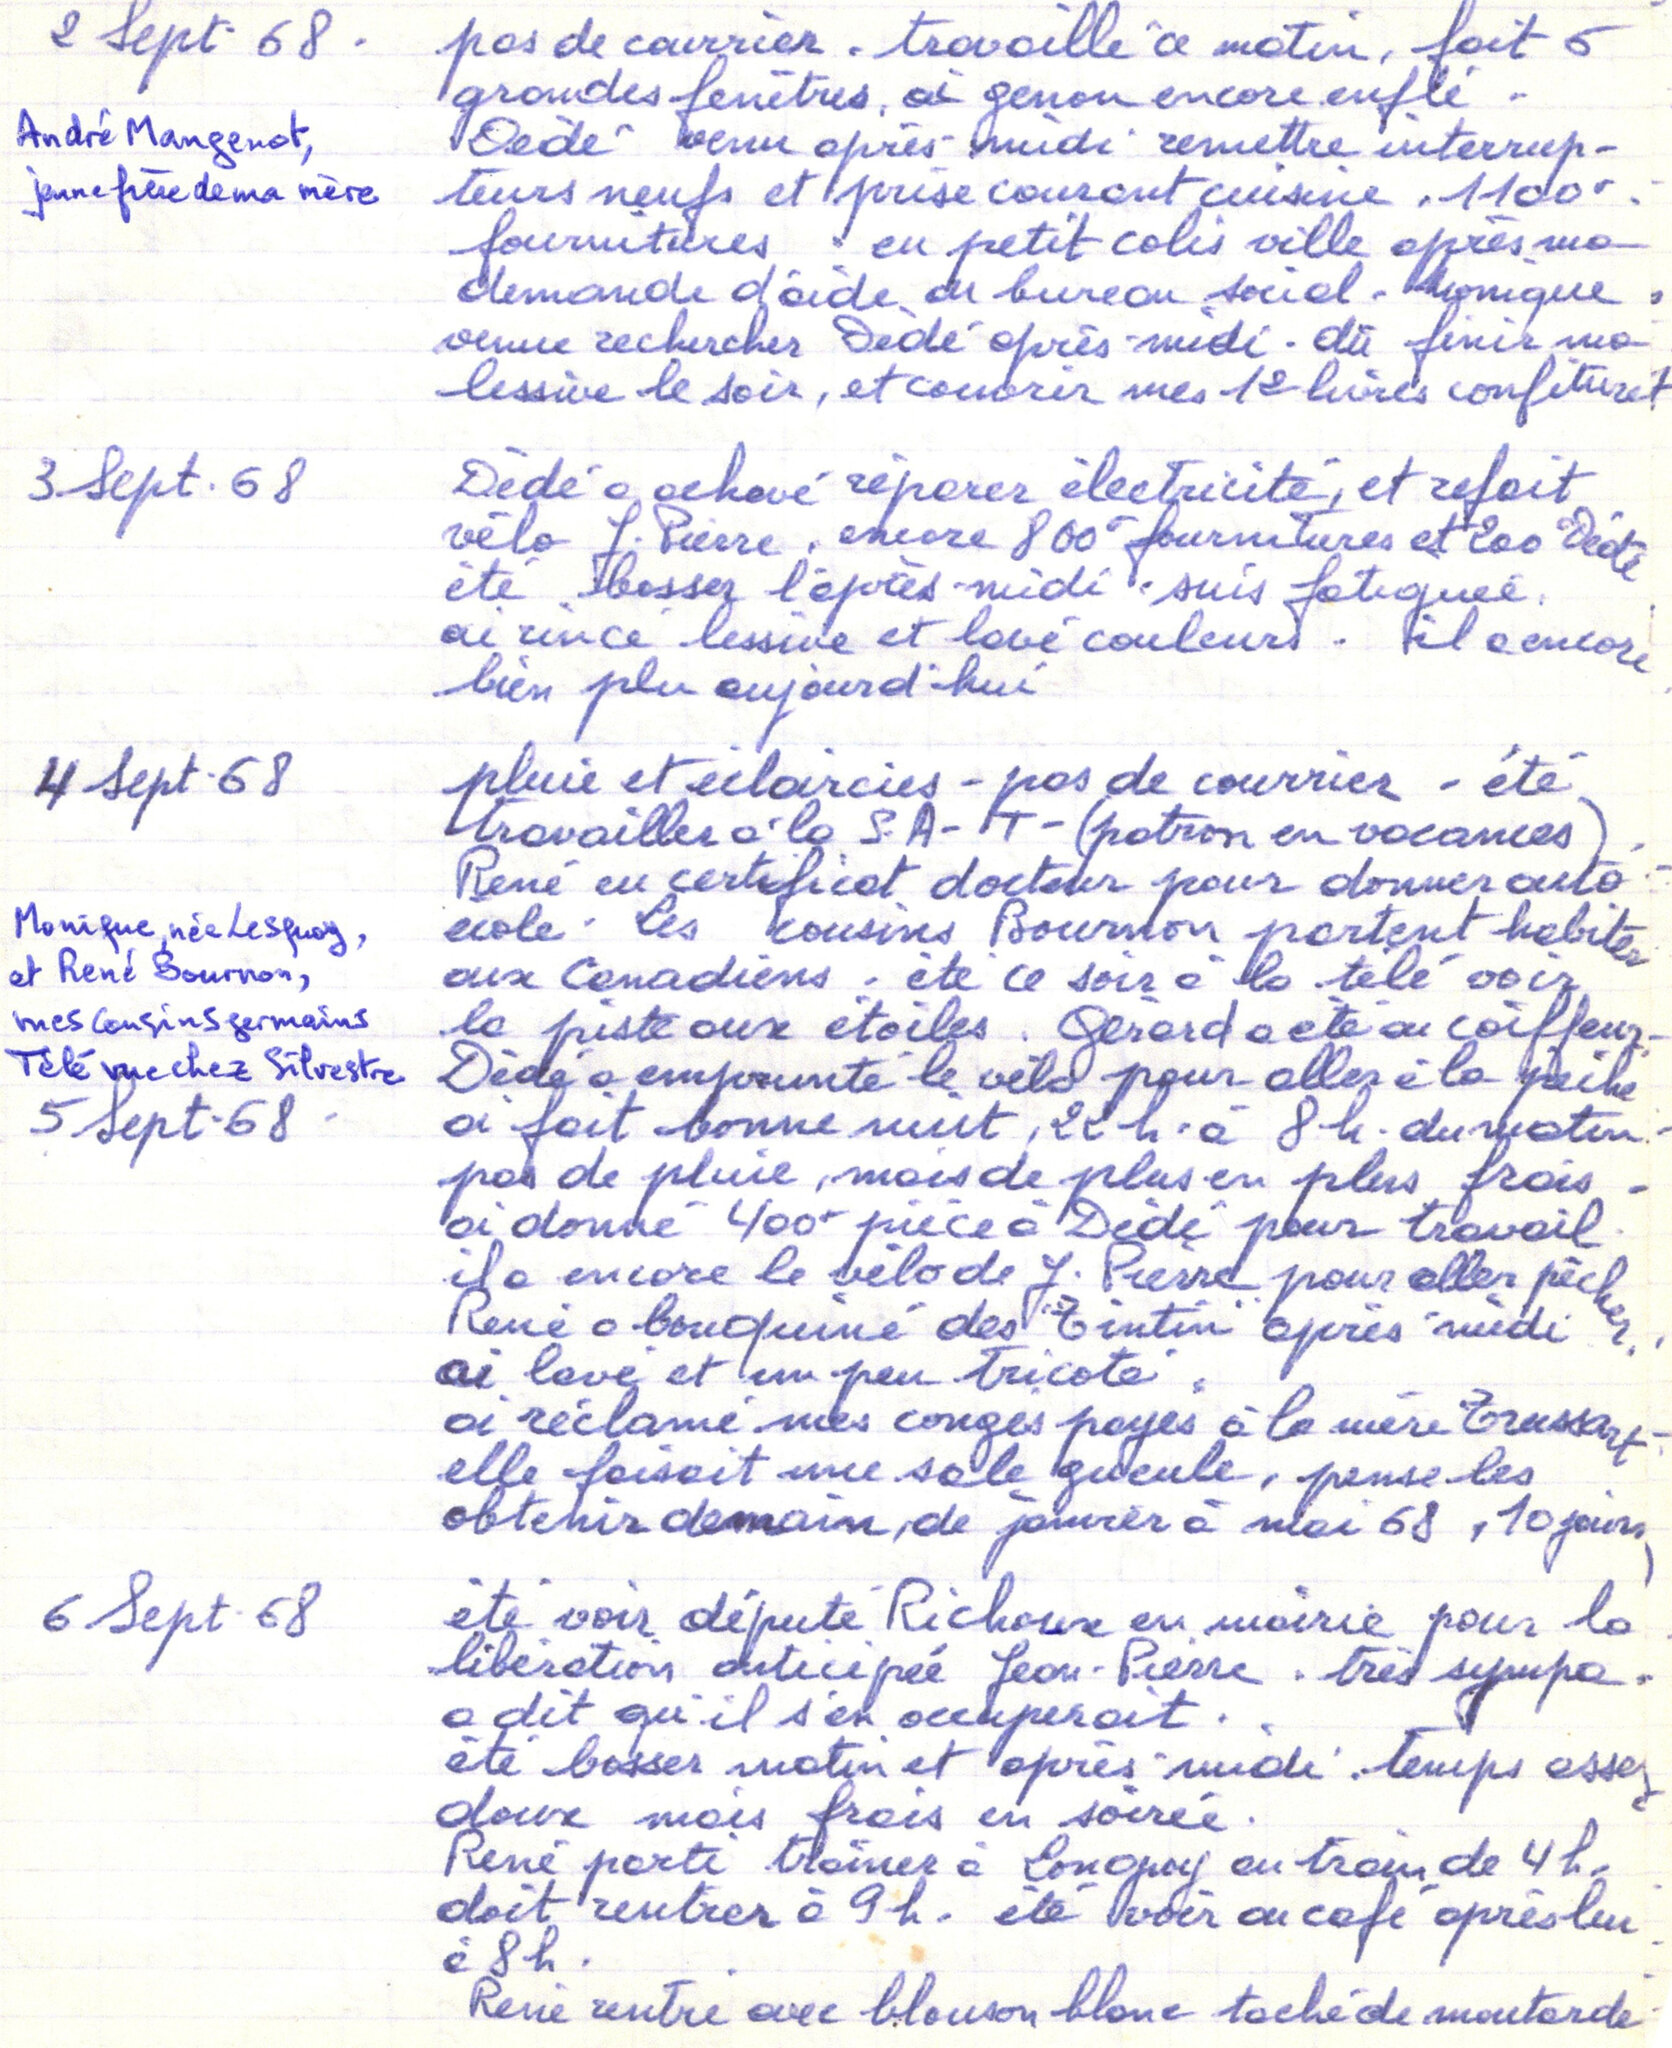 2 Sept. 68.
pas de courrier. travaillé ce matin, fait 5
grandes fenêtres, ai genou encore enflé.
André Mangenot,
jeune frère de ma mère
Dédé venu après-midi remettre interrup-
teurs neufs et prise courant cuisine. 1100
fournitures. eu petit colis ville après ma
demande d'aide au bureau social. Monique
venue rechercher Dédé après-midi. dû finir ma
lessive le soir, et couvrir mes 12 livres confitures
3 Sept. 68
Dédé a achevé réparer électricité, et refait
vélo J. Pierre, encore 800 fournitures et 200 Dédé
été bosser l'après-midi. suis fatiguée.
ai rincé lessive et lavé couleurs. il a encore
bien plu aujourd'hui
4 Sept. 68
pluie et éclaircies - pas de courrier - été
travailler à la S.A-T- (patron en vacances)
René eu certificat docteur pour donner auto
école. Les cousins Bournon partent habiter
aux Canadiens. été ce soir à la télé voir
la piste aux étoiles. Gérard a été au coiffeur.
Dédé a emprunté le vélo pour aller à la pêche
Monique, née Lesquoy,
et René Bournon,
mes cousins germains
Télé vue chez Silvestre
5 Sept. 68
ai fait bonne nuit, 22 h. à 8 h. du matin.
pas de pluie, mais de plus en plus frais -
ai donné 400 pièce à Dédé pour travail.
il a encore le vélo de J. Pierre pour aller pêcher,
René a bouquiné des "Tintin" après-midi
ai lavé et un peu tricoté.
ai réclamé mes congés payés à la mère Trussart
elle faisait une sale gueule, pense les
obtenir demain, de janvier à mai 68, 10 jours)
6 Sept. 68
été voir député Richoux en mairie pour la
libération anticipée Jean-Pierre. très sympa.
a dit qu'il s'en occuperait.
été bosser matin et après-midi. temps assez
doux mais frais en soirée.
René parti traîner à Longwy au train de 4 h.
doit rentrer à 9 h. été voir au café après lui
à 8 h.
René rentré avec blouson blanc taché de moutarde